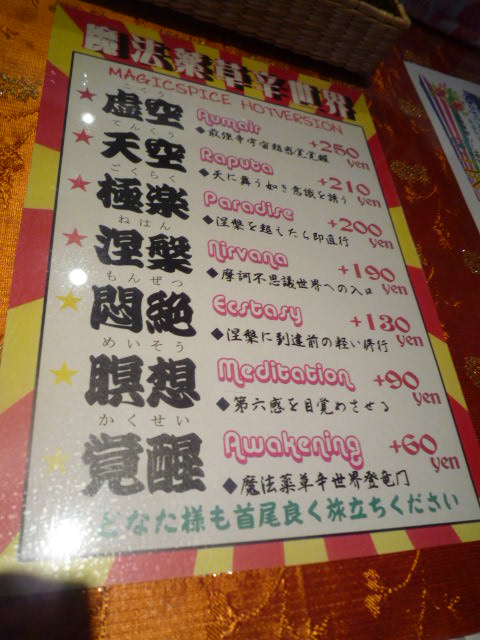 魔法薬草辛世界
MAGICSPICE HOTVERSION
こくう
★虚空 Aumair +250 yen
◆最強辛宇宙超感覚覚醒
てんくう
★天空 Raputa +210 yen
◆天に舞う如き意識を誘う
ごくらく
★極楽 Paradise +200 yen
◆涅槃を超えたら即直行
ねはん
★涅槃 Nirvana +190 yen
◆摩訶不思議世界への入口
もんぜつ
★悶絶 Ecstasy +130 yen
◆涅槃に到達前の軽い修行
めいそう
★瞑想 Meditation +90 yen
◆第六感を目覚めさせる
かくせい
★覚醒 Awakening +60 yen
◆魔法薬草辛世界登竜門
どなた様も首尾良く旅立ちください